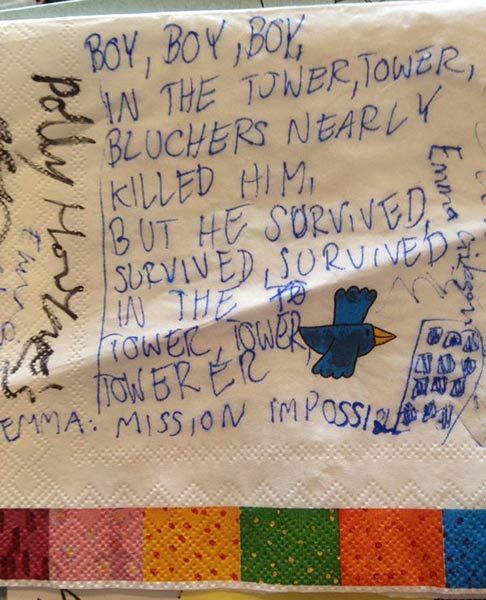 BOY, BOY, BOY,
IN THE TOWER, TOWER,
BLUCHERS NEARLY
KILLED HIM,
BUT HE SURVIVED,
SURVIVED, SURVIVED
IN THE TO
TOWER, TOWER,
TOWER ER
EMMA: MISSION IMPOSSIBLE
Polly Horvne's
Emma